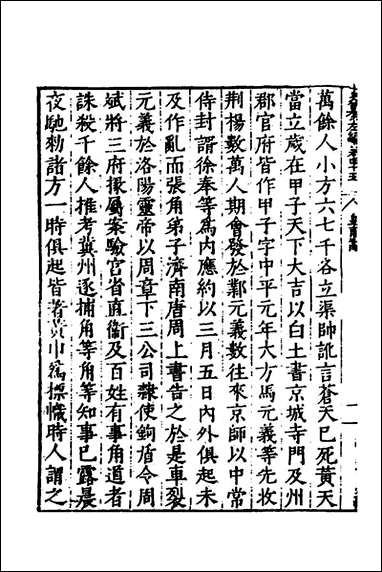 萬餘人小方六七千各立渠帥訛言蒼天已死黃天
當立歲在甲子天下大吉以白土書京城寺門及州
郡官府皆作甲子字中平元年大方馬元義等先收
荆楊數萬人期會發於鄴元義數往來京師以中常
侍封諝徐奉等爲内應約以三月五日内外俱起未
及作亂而張角弟子濟南唐周上書告之於是車裂
元義於洛陽靈帝以周章下三公司隷使鉤盾令周
斌將三府掾屬案驗宫省直衞及百姓有事角道者
誅殺千餘人推考冀州逐捕角等角等知事已露晨
夜馳勑諸方一時俱起皆著黃巾爲標幟時人謂之